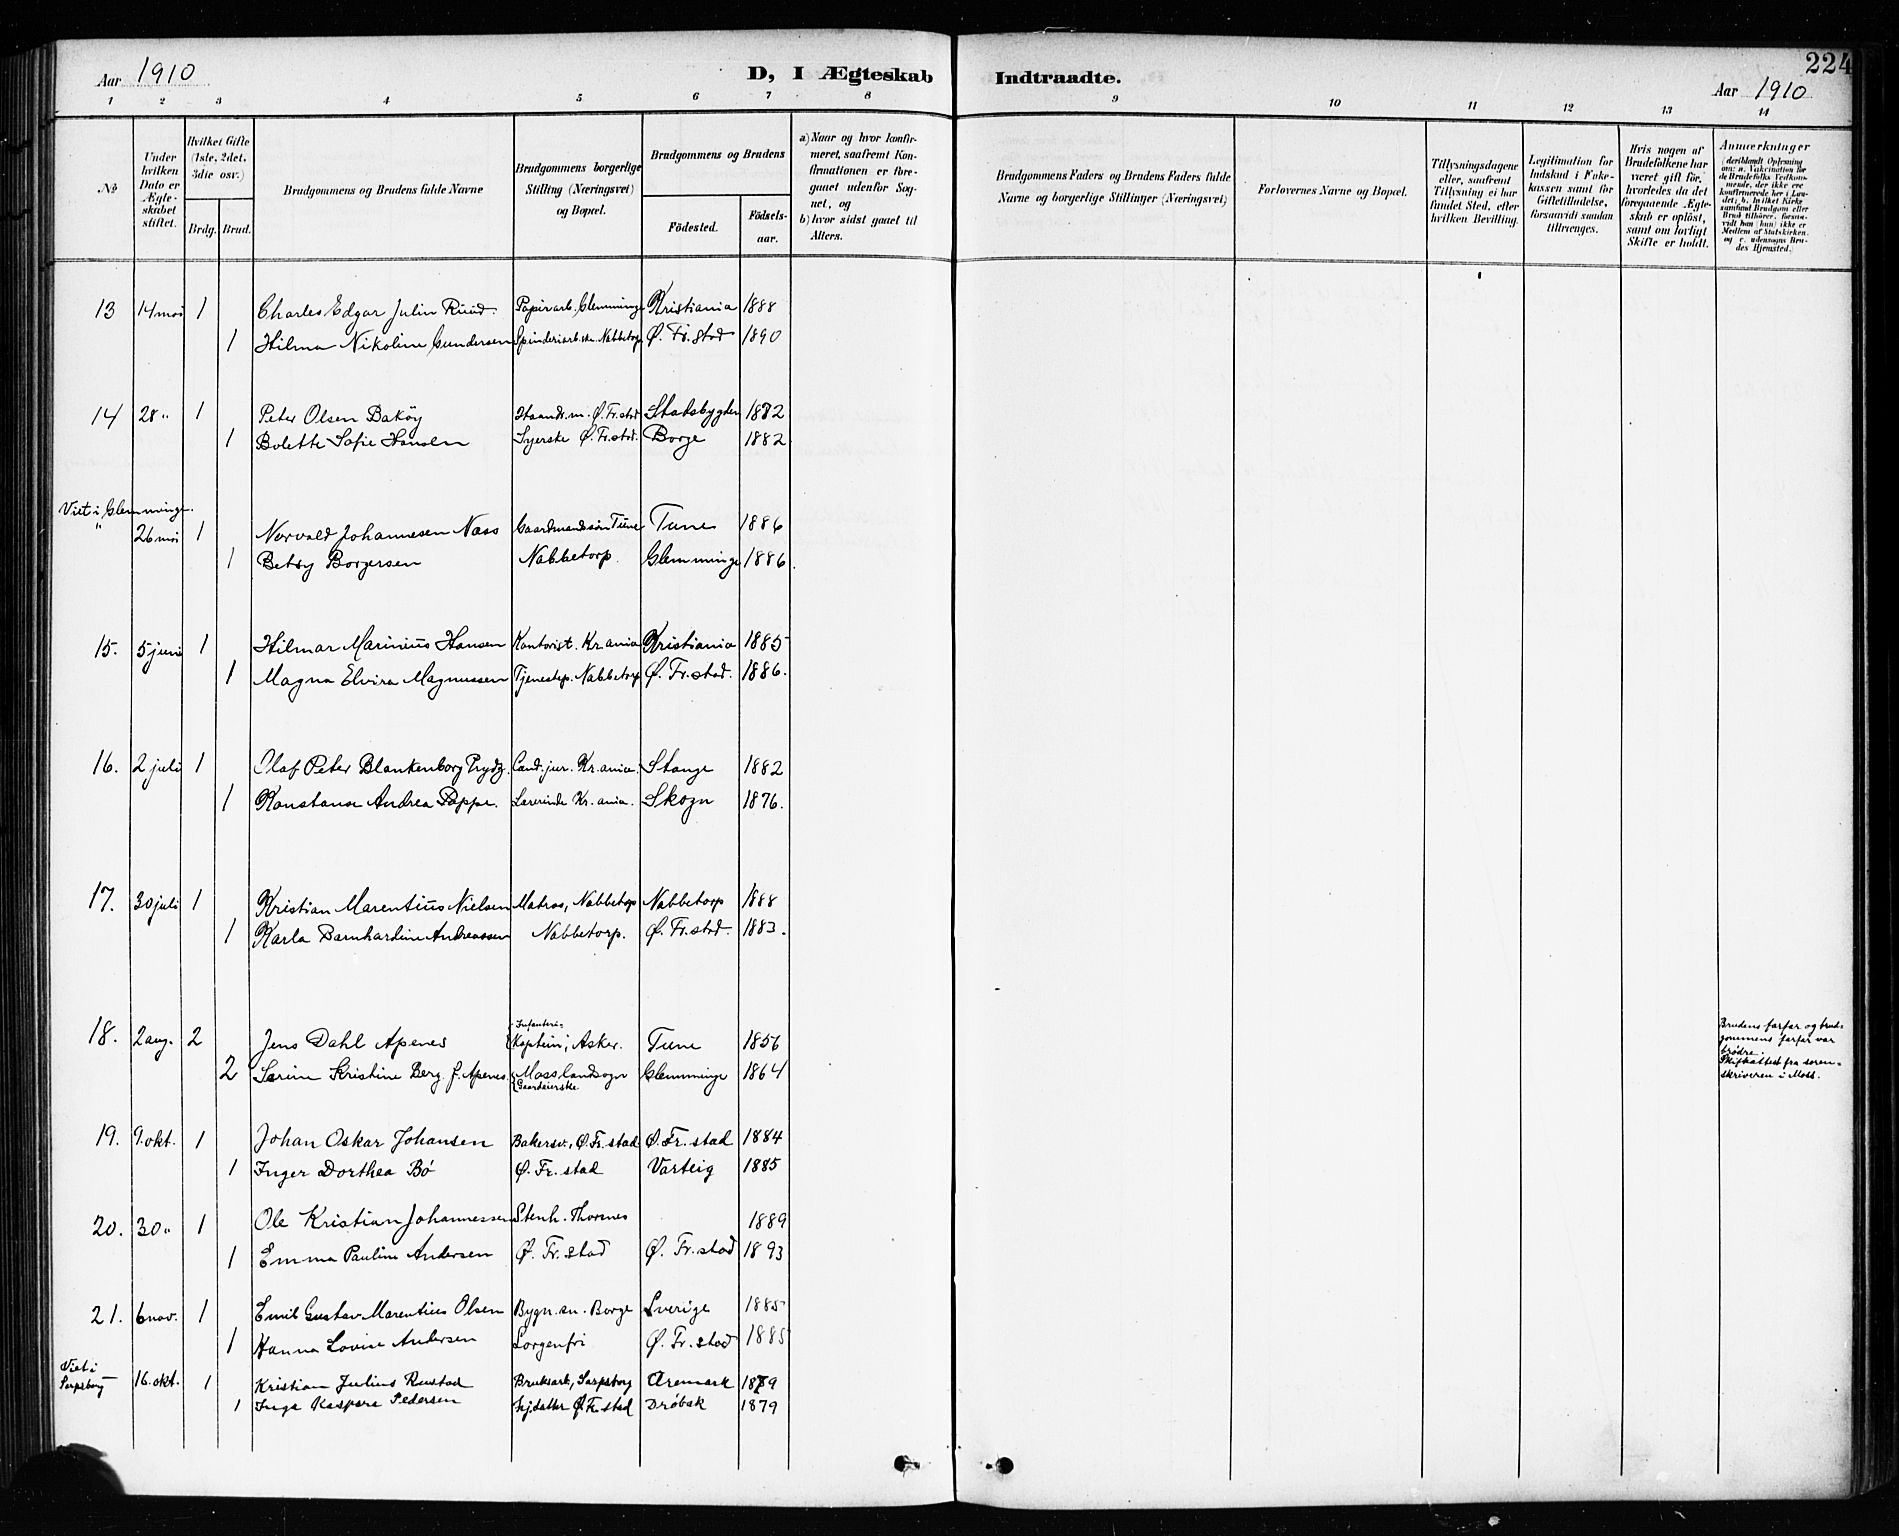 Aar 1910
D, I Ægteskab Indtraadte.
224
Aar 1910
1 2 3 4 5 6 7 8 9 10 11 12 13 14
No
Under hvilken Dato er Ægteskabet stiftet.
Hvilket Gifte (1ste, 2det, 3die osv.)
Brdg. Brud.
Brudgommens og Brudens fulde Navne
Brudgommens borgerlige Stilling (Næringsvei) og Bopæl.
Brudgommens og Brudens
Fødested.
Fødselsaar.
a) Naar og hvor konfirmeret, saafremt Konfirmationen er foregaaet udenfor Sognet, og
b) hvor sidst gaaet til Alters.
Brudgommens Faders og Brudens Faders fulde Navne og borgerlige Stillinger (Næringsvei)
Forlovernes Navne og Bopæl.
Tillysningsdagene eller, saafremt Tillysning ei har fundet Sted, efter hvilken Bevilling.
Legitimation for Indskud i Enkekassen samt for Giftetilladelse, forsaavidt saadan tiltrænges.
Hvis nogen af Brudefolkene har været gift før, hvorledes da det foregaaende Ægteskab er opløst, samt om lovligt Skifte er holdt.
Anmærkninger
13 14 mai 1 Charles Edgar Julin Ruud. Papirarb. Glemminge Kristiania 1888
1 Hilma Nikoline Gundersen Spinderiarb.ske Nabbetorp Ø. Fr. stad 1890
14 28 " 1 Peter Olsen Baköy Haandv.m. Ø. Fr. stad Stadsbygden 1882
1 Bolette Sofie Hansen Syerske Ø. Fr. stad. Borge 1882
Viet i Glemminge.
" 26 mai 1 Norvald Johannesen Næss Gaardmandssøn Tune Tune 1886
1 Betsy Borgersen Nabbetorp. Glemminge 1886.
15. 5 juni 1 Hilmar Marinius Hansen Kontorist. Kr.ania Kristiania 1885
1 Magna Elvira Magnussen Tjenestep. Nabbetorp Ø. Fr. stad. 1886.
16. 2 juli 1 Olaf Peter Blankenborg Prydz. Cand. jur. Kr.ania. Stange 1882
1 Konstanse Andrea Poppe. Lærerinde Kr. ania. Skogn 1876.
17. 30 juli 1 Kristian Marentius Nielsen Matros, Nabbetorp Nabbetorp 1888
1 Karla Barnhardine Andreassen Nabbetorp. Ø. Fr. stad. 1883.
18. 2 aug. 2 Jens Dahl Apenes Infanteri-Kaptein i Asker. Tune 1856
2 Sarine Kristine Berg f. Apenes. Moss landsogn Gaardeierske Glemminge 1864
Brudens farfar og brudgommens farfar var brødre.
Skifteattest fra sorenskriveren i Moss.
19. 9. okt. 1 Johan Oskar Johansen Bakersv., Ø. Fr. stad Ø. Fr. stad 1884
1 Inger Dorthea Bö Ø. Fr. stad Varteig 1885
20. 30 " 1 Ole Kristian Johannessen Stenh. Thorsnes 1889
1 Emma Pauline Andersen Ø. Fr. stad Ø. Fr. stad 1893
21. 6 nov. 1 Emil Gustav Marentius Olsen Bygn. sn. Borge Sverige 1885
1 Hanna Lovise Andersen Sorgenfri Ø. Fr. stad 1885
Viet i Sarpsborg 16. okt. 1 Kristian Julius Rustad Bruksarb, Sarpsborg Aremark 1879
1 Inga Kaspara Pedersen Ø Fr. stad Drøbak 1879